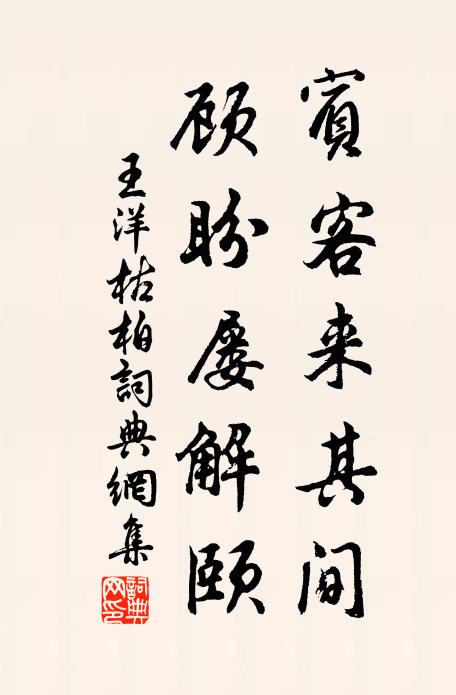 賓客来其间
顾盼屡解颐
王洋枯柏詞典網集
詞典网印